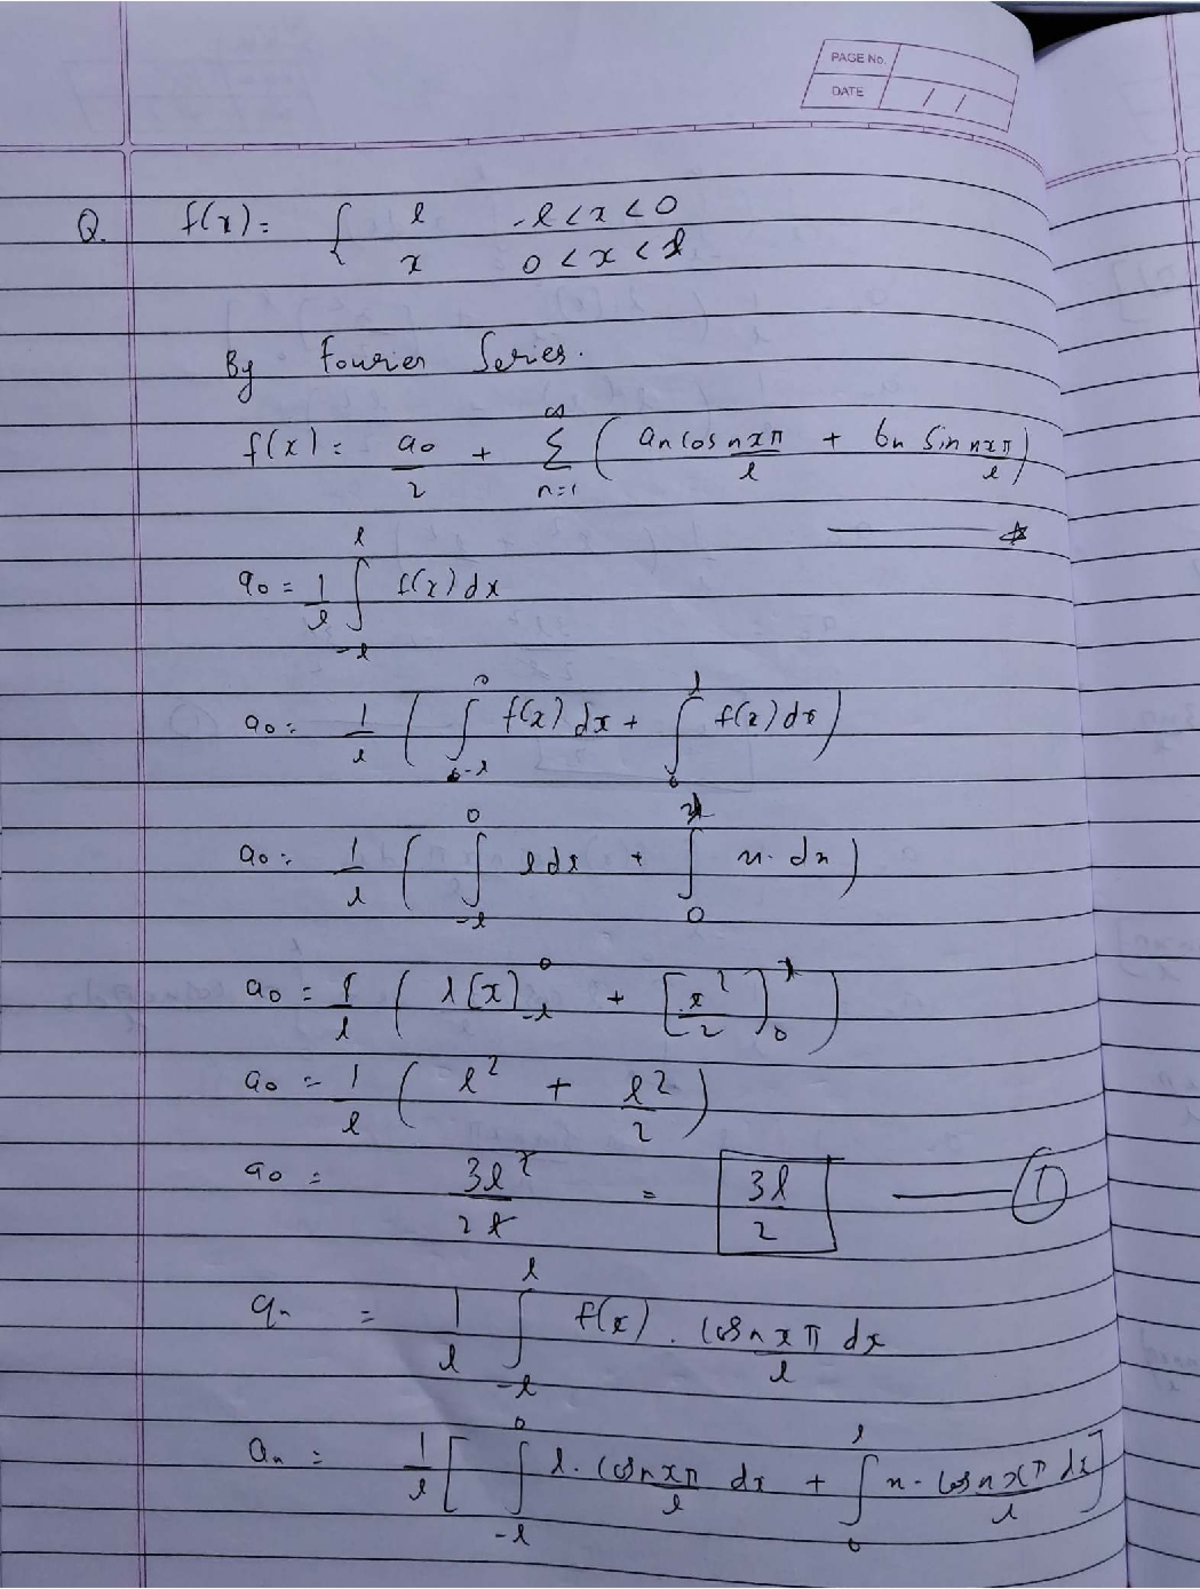 PAGE No.
DATE / /
Q. f(x) = { l -l < x < 0
x 0 < x < l
By Fourier Series.
f(x) = a0/2 + ∞Σn=1 ( an cos nxπ/l + bn sin nxπ/l )
☆
a0 = 1/l ∫_{-l}^{l} f(x) dx
a0 = 1/l ( ∫_{-l}^{0} f(x) dx + ∫_{0}^{l} f(x) dx )
a0 = 1/l ( ∫_{-l}^{0} l dx + ∫_{0}^{l} x. dx )
a0 = 1/l ( l [x]_{-l}^{0} + [x²/2]_{0}^{l} )
a0 = 1/l ( l² + l²/2 )
a0 = 3l²/2l = 3l/2 ①
an = 1/l ∫_{-l}^{l} f(x) . cos nxπ/l dx
an = 1/l [ ∫_{-l}^{0} l. cos nxπ/l dx + ∫_{0}^{l} x. cos nxπ/l dx ]